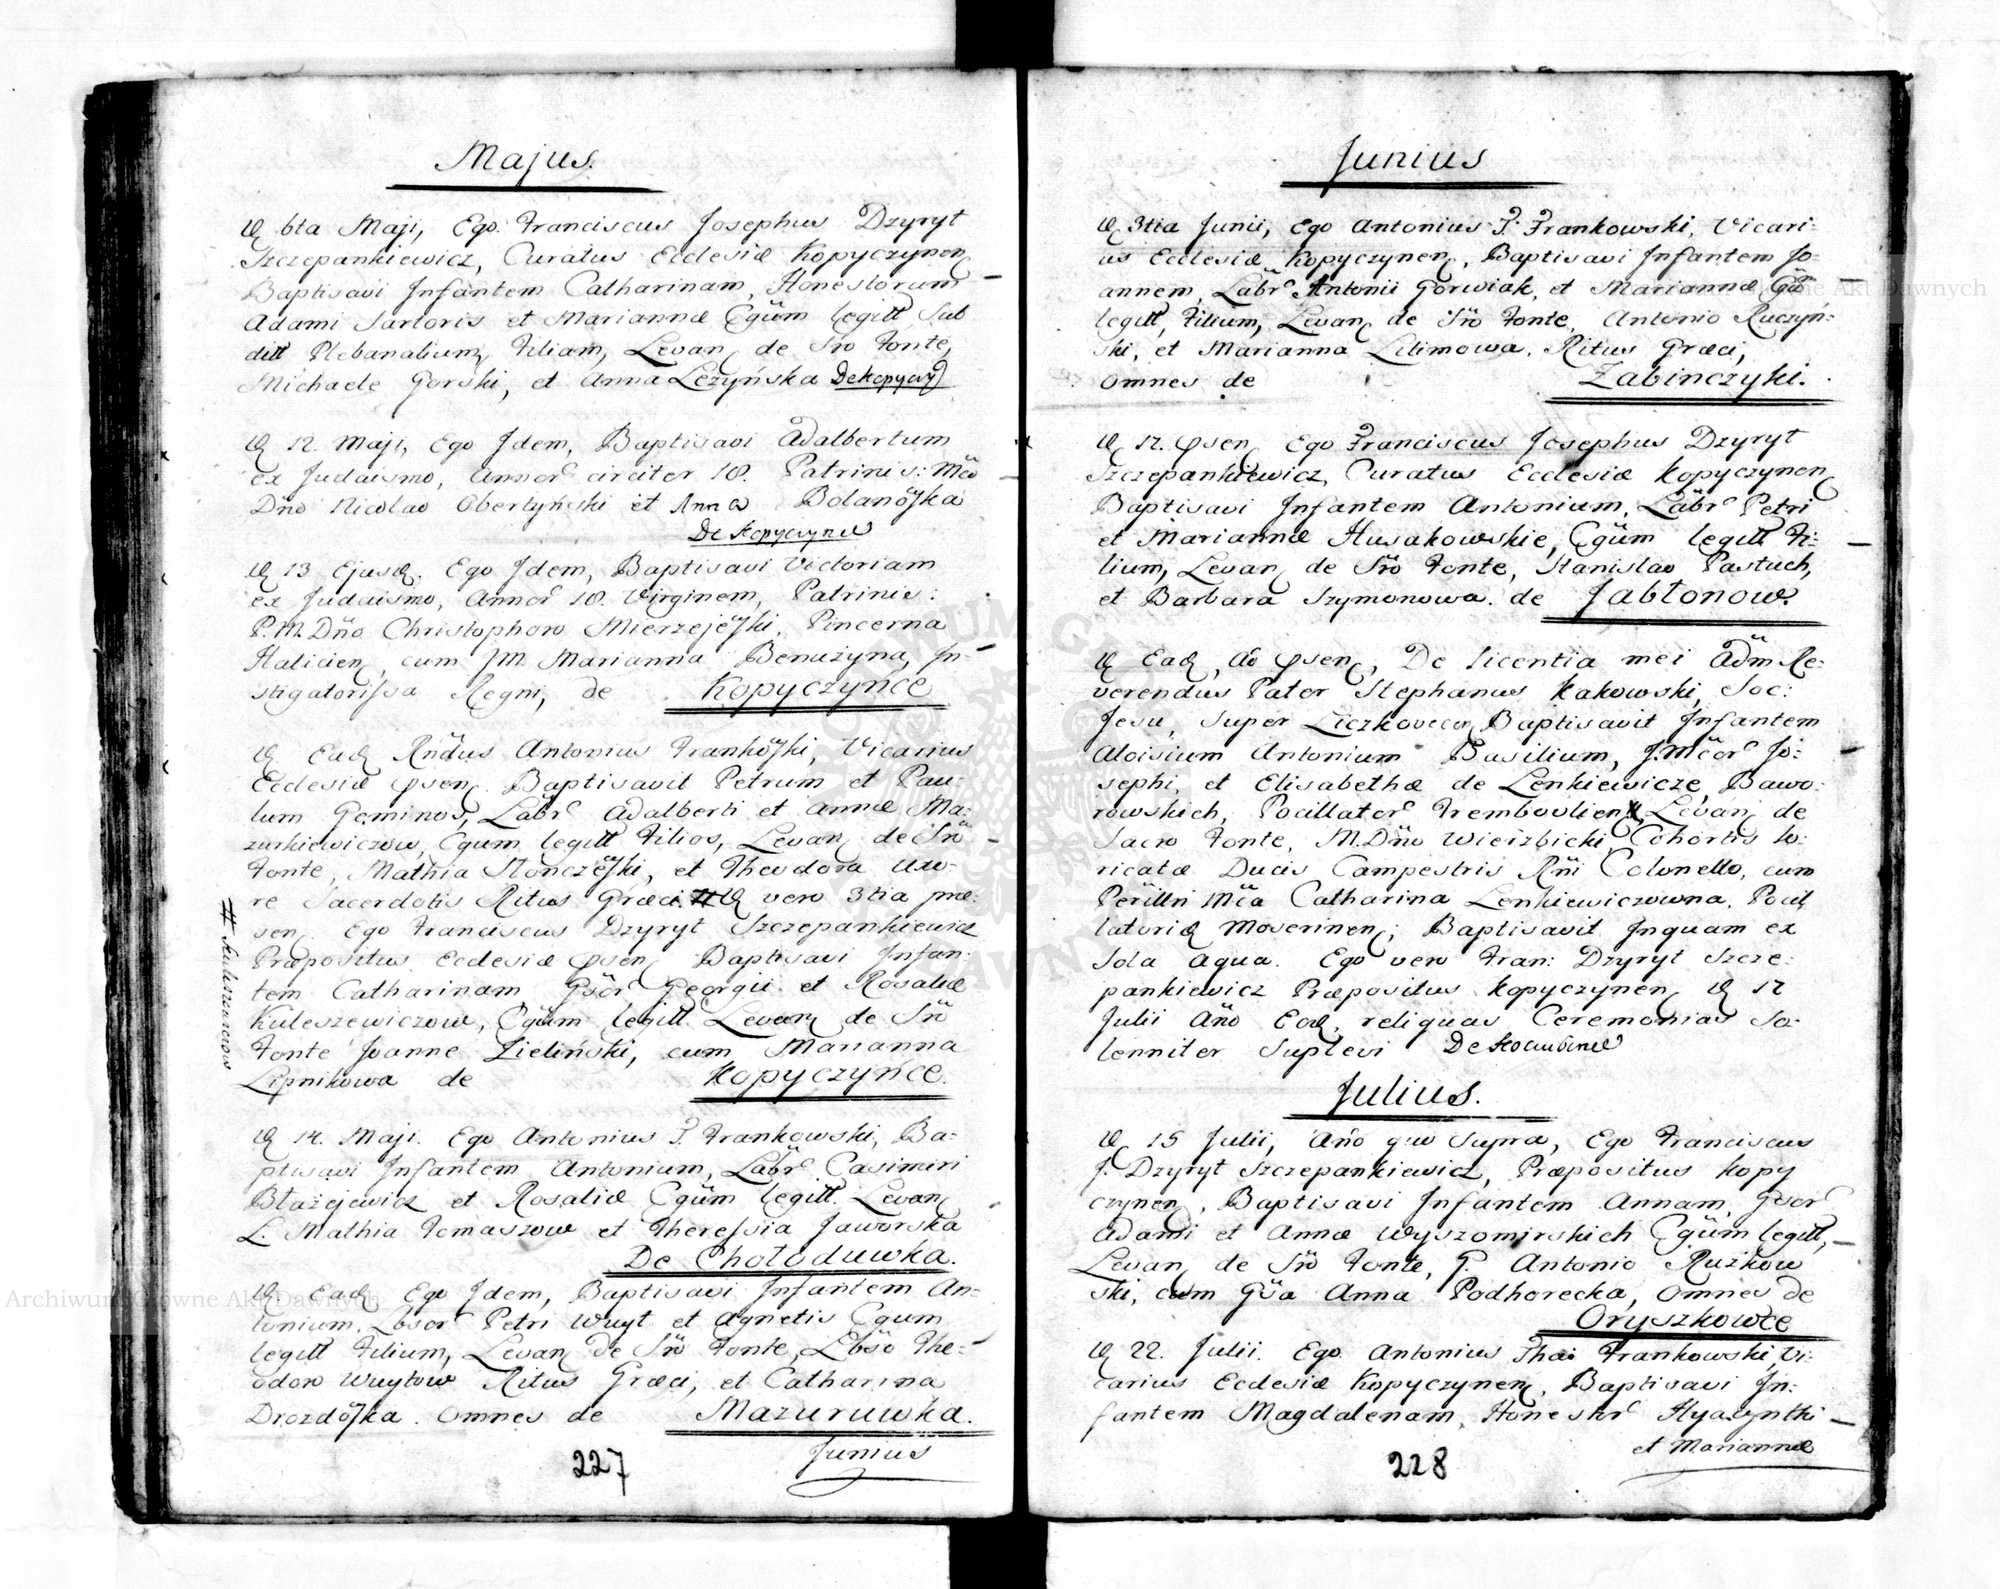 Majus.
D. 6ta Maji, Ego Franciscus Josephus Dzyryt
Szczepankiewicz, Curatus Ecclesiæ Kopyczynen
Baptisavi Infantem Catharinam, Honestorum
Adami Sartoris et Mariannæ C̈güm legitt, Sub
ditt Plebanalium, Filiam, Levan de Sro Fonte,
Michaele Gorski, et Anna Lezyńska De Kopyczÿ
D. 12. Maji, Ego Idem, Baptisavi Adalbertum
ex Judaismo, Annor circiter 18. Patrinis: Mco
Dno Nicolao Obertyński et Anna Bolanoſka
De Kopyczynce
D. 13 Ejusd. Ego Idem, Baptisavi Victoriam
ex Judaismo, Annor 18. Virginem, Patrinis:
P.M. Dño Christophoro Mierzejeſki, Pincerna
Halicien, cum JM Marianna Benużyna, In-
stigatoriſsa Regni, de Kopyczyńce
D. Ead Rndus Antonius Frankoſki, Vicarius
Ecclesiæ psen Baptisavit Petrum et Pau-
lum Geminos, Labr Adalberti et Annæ Ma-
zurkiewiczow, Cgum legitt Filios, Levan de Sro
Fonte, Mathia Słonczeſki, et Theodora Uxo-
re Sacerdotis Ritus Græci. # D vero 3tia præ-
sen. Ego Franciscus Dzyryt Szczepankiewicz
Præpositus Ecclesiæ psen Baptisavi Infan-
tem Catharinam Gsor Georgii et Rosaliæ
Kuleszewiczow, Cgüm legitt Levan de Sro
Fonte Joanne Zieliński, cum Marianna
Lipnikowa de Kopyczyńce.
D. 14. Maji. Ego Antonius T. Frankowski, Ba-
ptisavi Infantem Antonium, Labr Casimiri
Błażejewicz et Rosaliæ Cgüm legitt. Levan
L. Mathia Tomaszow et Thereſsia Jaworska
De Chołoduwka.
D. Ead Ego Idem, Baptisavi Infantem An-
tonium, Lbsor Petri Wuyt et Agnetis Cgum
legitt Filium, Levan de Sro Fonte, Lbso The-
odoro Wuytow Ritus Græci, et Catharina
Drozdoſka. Omnes de Mazuruwka.
227 Junius
Junius
D. 3tia Junii, Ego Antonius T. Frankowski, Vicari-
us Ecclesiæ Kopyczynen, Baptisavi Infantem Jo-
annem, Labr Antonii Gorwiak, et Mariannæ Cgm
legitt, Filium, Levan de Sro Fonte, Antonio Ruczyn-
ski, et Marianna Lilimowa, Ritus Græci,
Omnes de Zabinczyki.
D. 12. psen Ego Franciscus Josephus Dzyryt
Szczepankiewicz, Curatus Ecclesiæ Kopyczynen
Baptisavi Infantem Antonium, Labr Petri
et Mariannæ Husakowskie, Cgüm legitt Fi-
lium, Levan de Sro Fonte, Stanislao Pastuch,
et Barbara Szymonowa. de Jabłonow.
D. Ead, ao psen, De licentia mei Adm Re-
verendus Pater Stephanus Kakowski, Soc:
Jesu, Super Liczkovecen Baptisavit Infantem
Aloisium Antonium Basilium, J.Mcor Jo-
sephi, et Elisabethæ de Lenkiewicze, Bawo-
rowskich, Pocillator Trembovlien, Levan de
Sacro Fonte, M. Dño Wierzbicki, Cohortis lo-
ricatæ Ducis Campestris Rni Colonello, cum
Perilln Mca Catharina Lenkiewiczowna, Pocil
latorid Moserinen; Baptisavit Inquam ex
Sola aqua. Ego vero Fran: Dzyryt Szcze-
pankiewicz Præpositus Kopyczynen D. 12
Julii Año Eod, reliquas Ceremonias So-
lenniter Suplevi De Kociubince
Julius.
D. 15 Julii, Año quo Supra, Ego Franciscus
J. Dzyryt Szczepankiewicz, Præpositus Kopy
czynen, Baptisavi Infantem Annam, Gsor
Adami et Annæ Wyszomirskich Cgüm legitt,
Levan de Sro Fonte, G. Antonio Rużkow
ski, cum Gsa Anna Podhorecka, Omnes de
Oryszkowce
D. 22. Julii. Ego Antonius Thai Frankowski Vi-
carius Ecclesiæ Kopyczynen, Baptisavi In-
fantem Magdalenam, Honestr Hyacynthi
228 et Mariannæ